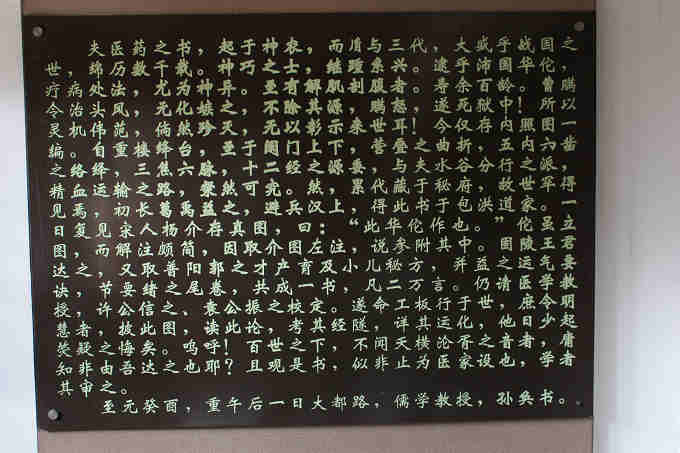 夫医药之书，起于神农，而盾与三代，大盛乎战国之
世，绵历数千载。神巧之士，继踵系兴。逮乎沛国华佗，
疗病处法，尤为神异。至有解肌刳腹者。寿余百龄。曹瞒
令治头风，无化嫉之，不除其源，瞒怒，遂死狱中！所以
灵机伟范，倘然殄灭，无以彰示来世耳！今仅存内照图一
编。自重楼绛台，至于阑门上下，营叠之曲折，五内六凿
之络绎，三焦六脉，十二经之源委，与夫水谷分行之派，
精血运输之路，粲然可究。然，累代藏于秘府，故世罕得
见焉，初长葛禹益之，避兵汉上，得此书于包洪道家。一
日复见宋人杨介存真图，曰：“此华佗作也。”佗虽立
图，而解注颇简，因取介图左注，说参附其中。国陵王君
达之，又取普阳郭之才产育及小儿秘方，并益之运气要
诀，节要绪之尾卷，共成一书，凡二万言。仍请医学教
授，许公信之、袁公振之校定。遂命工板行于世，庶令明
慧者，披此图，读此论，考其经隧，详其运化，他日少起
荧疑之悔矣。呜呼！百世之下，不闻天横沦胥之音者，庸
知非由吾达之也耶？且现是书，似非止为医家设也，学者
其审之。
至元癸酉，重午后一日大都路，儒学教授，孙奂书。